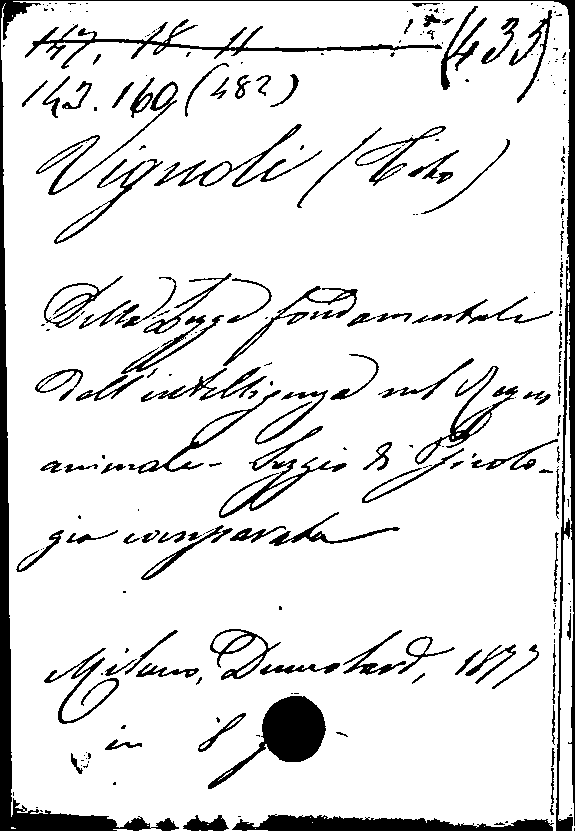 147. 18. 11 (433)
143.160 (482)
Vignoli (Tito)
Della Legge fondamentale
dell'intelligenza nel Regno
animale - Saggio di Psicolo-
gia comparata
Milano, Dumolard, 1877
in 8